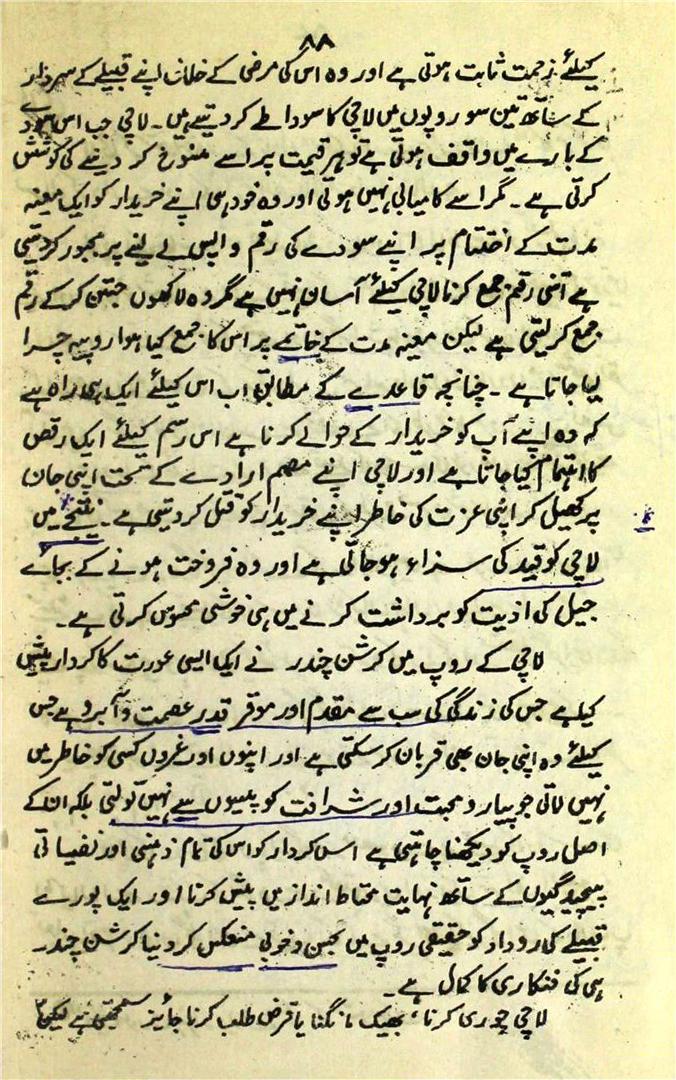 ۸۸
کیلئے زحمت ثابت ہوتی ہے اور وہ اس کی مرضی کے خلاف اپنے قبیلے کے سردار
کے ساتھ تین سو روپوں میں لاچی کا سودا طے کر دیتے ہیں۔ لاچی جب اس سودے
کے بارے میں واقف ہوتی ہے تو ہر قیمت پر اسے منسوخ کر دینے کی کوشش
کرتی ہے۔ مگر اسے کامیابی نہیں ہوتی اور وہ خود ہی اپنے خریدار کو ایک معینہ
مدت کے اختتام پر اپنے سودے کی رقم واپس لے لینے پر مجبور کر دیتی
ہے اتنی رقم جمع کرنا لاچی کیلئے آسان نہیں ہے مگر وہ لاکھوں جتن کر کے رقم
جمع کر لیتی ہے لیکن معینہ مدت کے خاتمے پر اس کا جمع کیا ہوا روپیہ چرا
لیا جاتا ہے۔ چنانچہ قاعدے کے مطابق اب اس کیلئے ایک ہی راہ ہے
کہ وہ اپنے آپ کو خریدار کے حوالے کرنا ہے اس رسم کیلئے ایک رقص
کا اہتمام کیا جاتا ہے اور لاچی اپنے مصمم ارادے کے تحت اپنی جان
پر کھیل کر اپنی عزت کی خاطر اپنے خریدار کو قتل کر دیتی ہے۔ نتیجے میں
لاچی کو قید کی سزاء ہو جاتی ہے اور وہ فروخت ہونے کے بجائے
جیل کی اذیت کو برداشت کرنے میں ہی خوشی محسوس کرتی ہے۔
لاچی کے روپ میں کرشن چندر نے ایک ایسی عورت کا کردار پیش
کیا ہے جس کی زندگی کی سب سے مقدم اور موقر قدر عصمت و آبرو ہے جس
کیلئے وہ اپنی جان بھی قربان کر سکتی ہے اور اپنوں اور غیروں کسی کو خاطر میں
نہیں لاتی جو پیار و محبت اور شرافت کو پیسوں سے نہیں تولتی بلکہ ان کے
اصل روپ کو دیکھنا چاہتی ہے اس کردار کو اس کی تمام ذہنی اور نفسیاتی
پیچیدگیوں کے ساتھ نہایت محتاط انداز میں پیش کرنا اور ایک پورے
قبیلے کی روداد کو حقیقی روپ میں بحسن و خوبی منعکس کر دینا کرشن چندر
ہی کی فنکاری کا کمال ہے۔
لاچی چوری کرنا، بھیک مانگنا یا قرض طلب کرنا جائز سمجھتی ہے لیکن